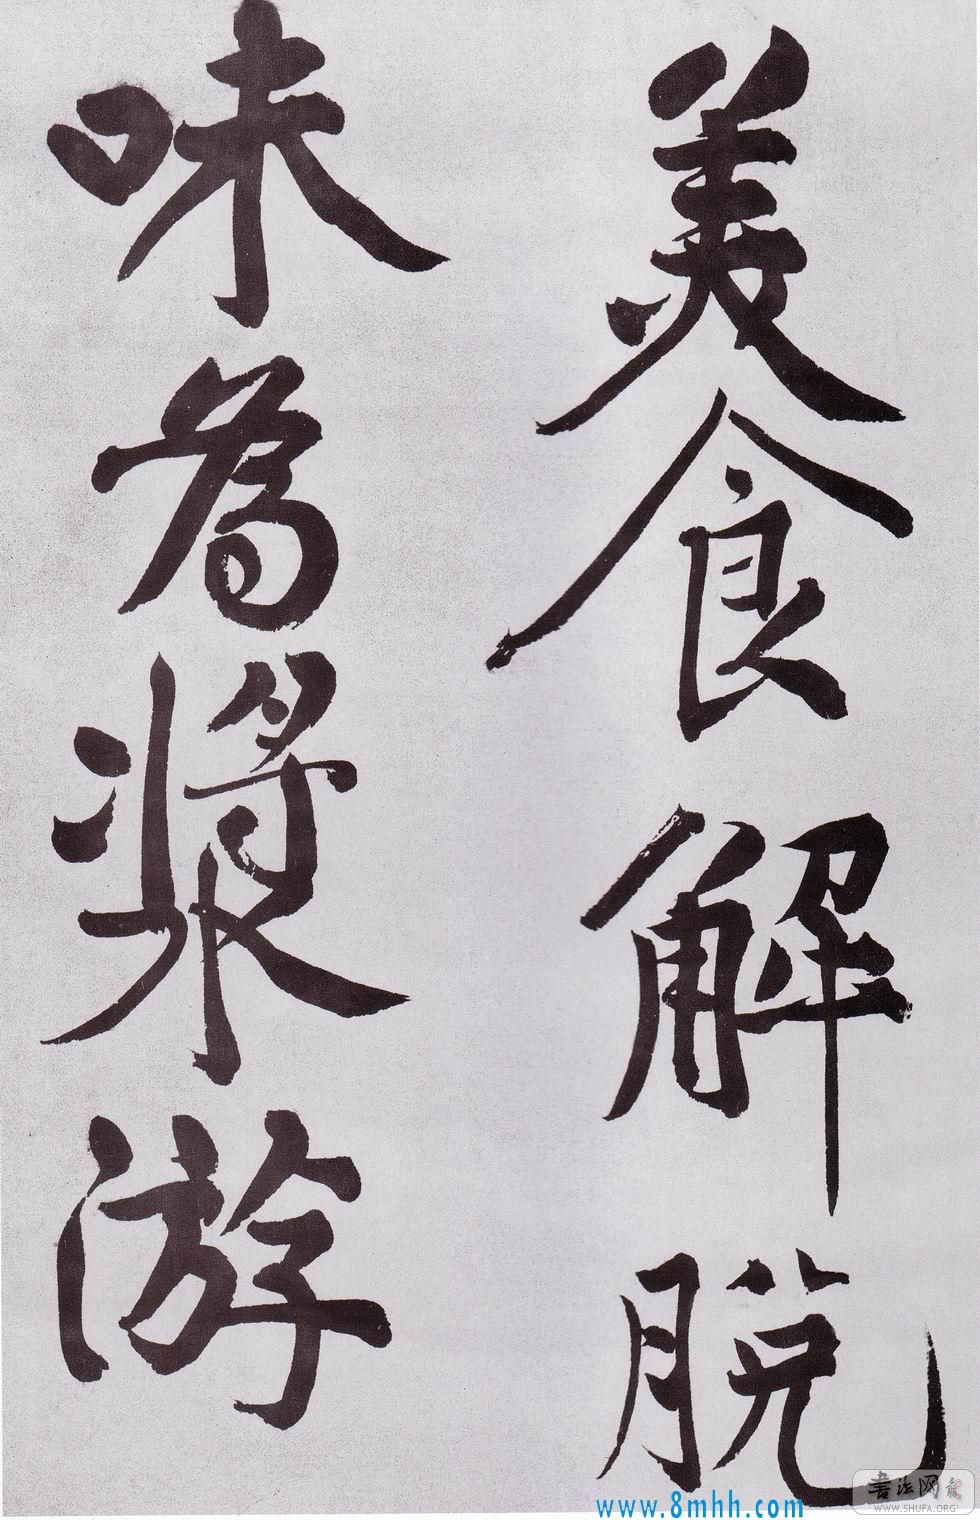 美食解脱
味為漿游
www.8mhh.com
書法网
WWW.SHUFA.ORG